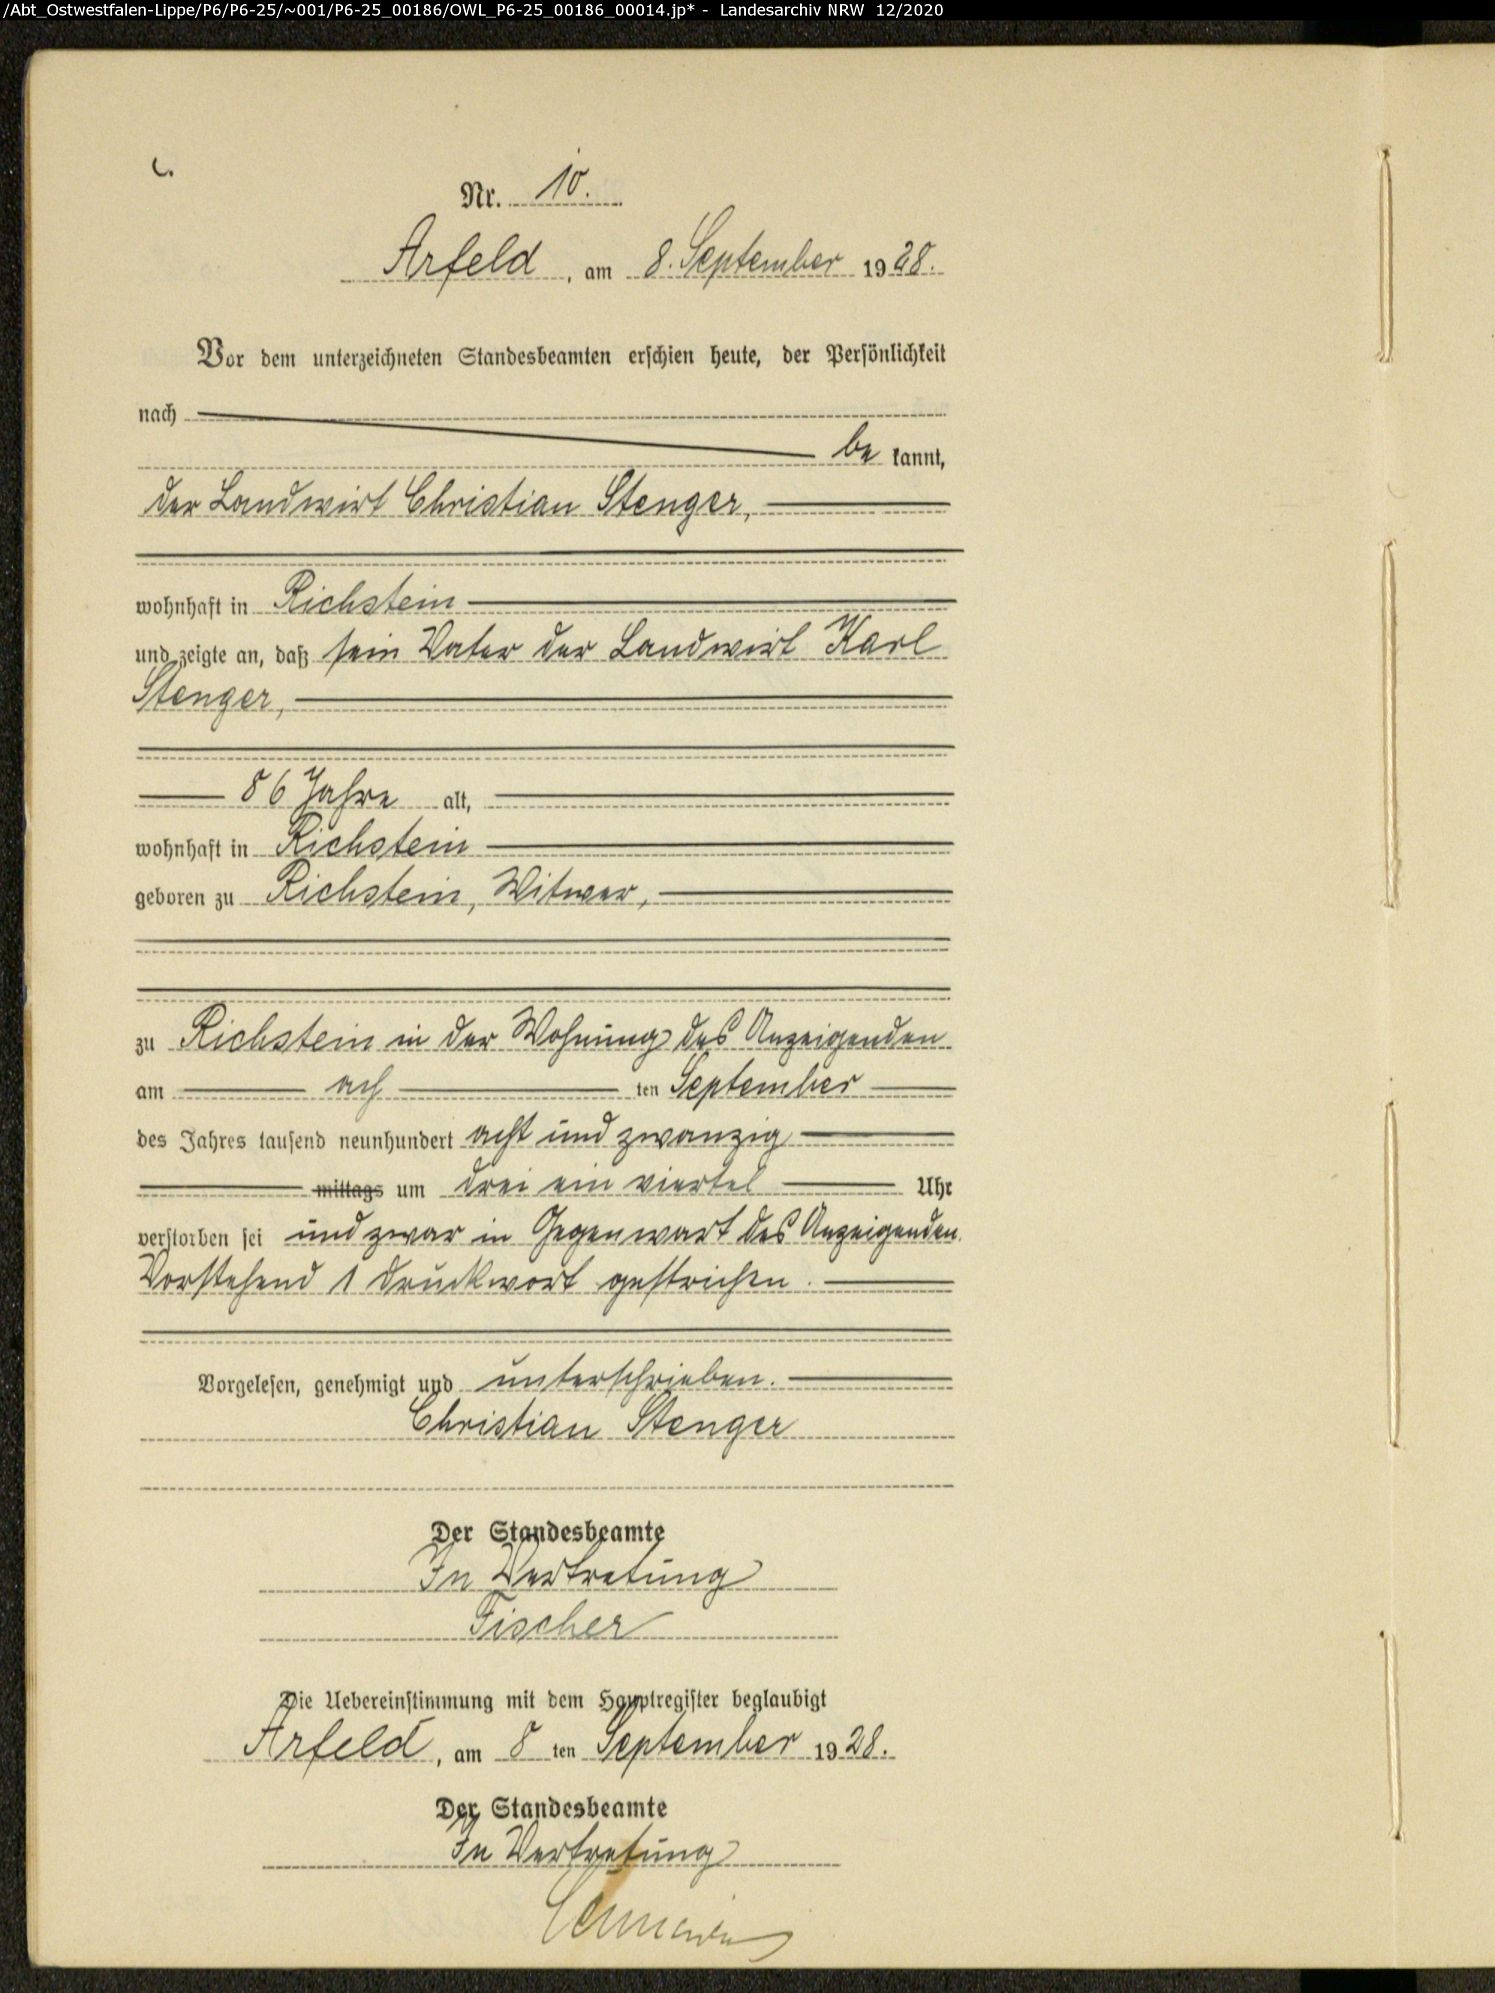 /Abt_Ostwestfalen-Lippe/P6/P6-25/~001/P6-25_00186/OWL_P6-25_00186_00014.jp* - Landesarchiv NRW 12/2020
C.
Nr. 10.
Arfeld, am 8. September 1928.
Vor dem unterzeichneten Standesbeamten erschien heute, der Persönlichkeit
nach
be kannt,
der Landwirt Christian Stenger,
wohnhaft in Richstein
und zeigte an, daß sein Vater der Landwirt Karl
Stenger,
86 Jahre alt,
wohnhaft in Richstein
geboren zu Richstein, Witwer,
zu Richstein in der Wohnung des Anzeigenden
am ach ten September
des Jahres tausend neunhundert acht und zwanzig
mittags um drei ein viertel Uhr
verstorben sei und zwar in Gegenwart des Anzeigenden.
Vorstehend 1 Druckwort gestrichen.
Vorgelesen, genehmigt und unterschrieben.
Christian Stenger
Der Standesbeamte
In Vertretung
Fischer
Die Uebereinstimmung mit dem Hauptregister beglaubigt
Arfeld, am 8 ten September 1928.
Der Standesbeamte
In Vertretung